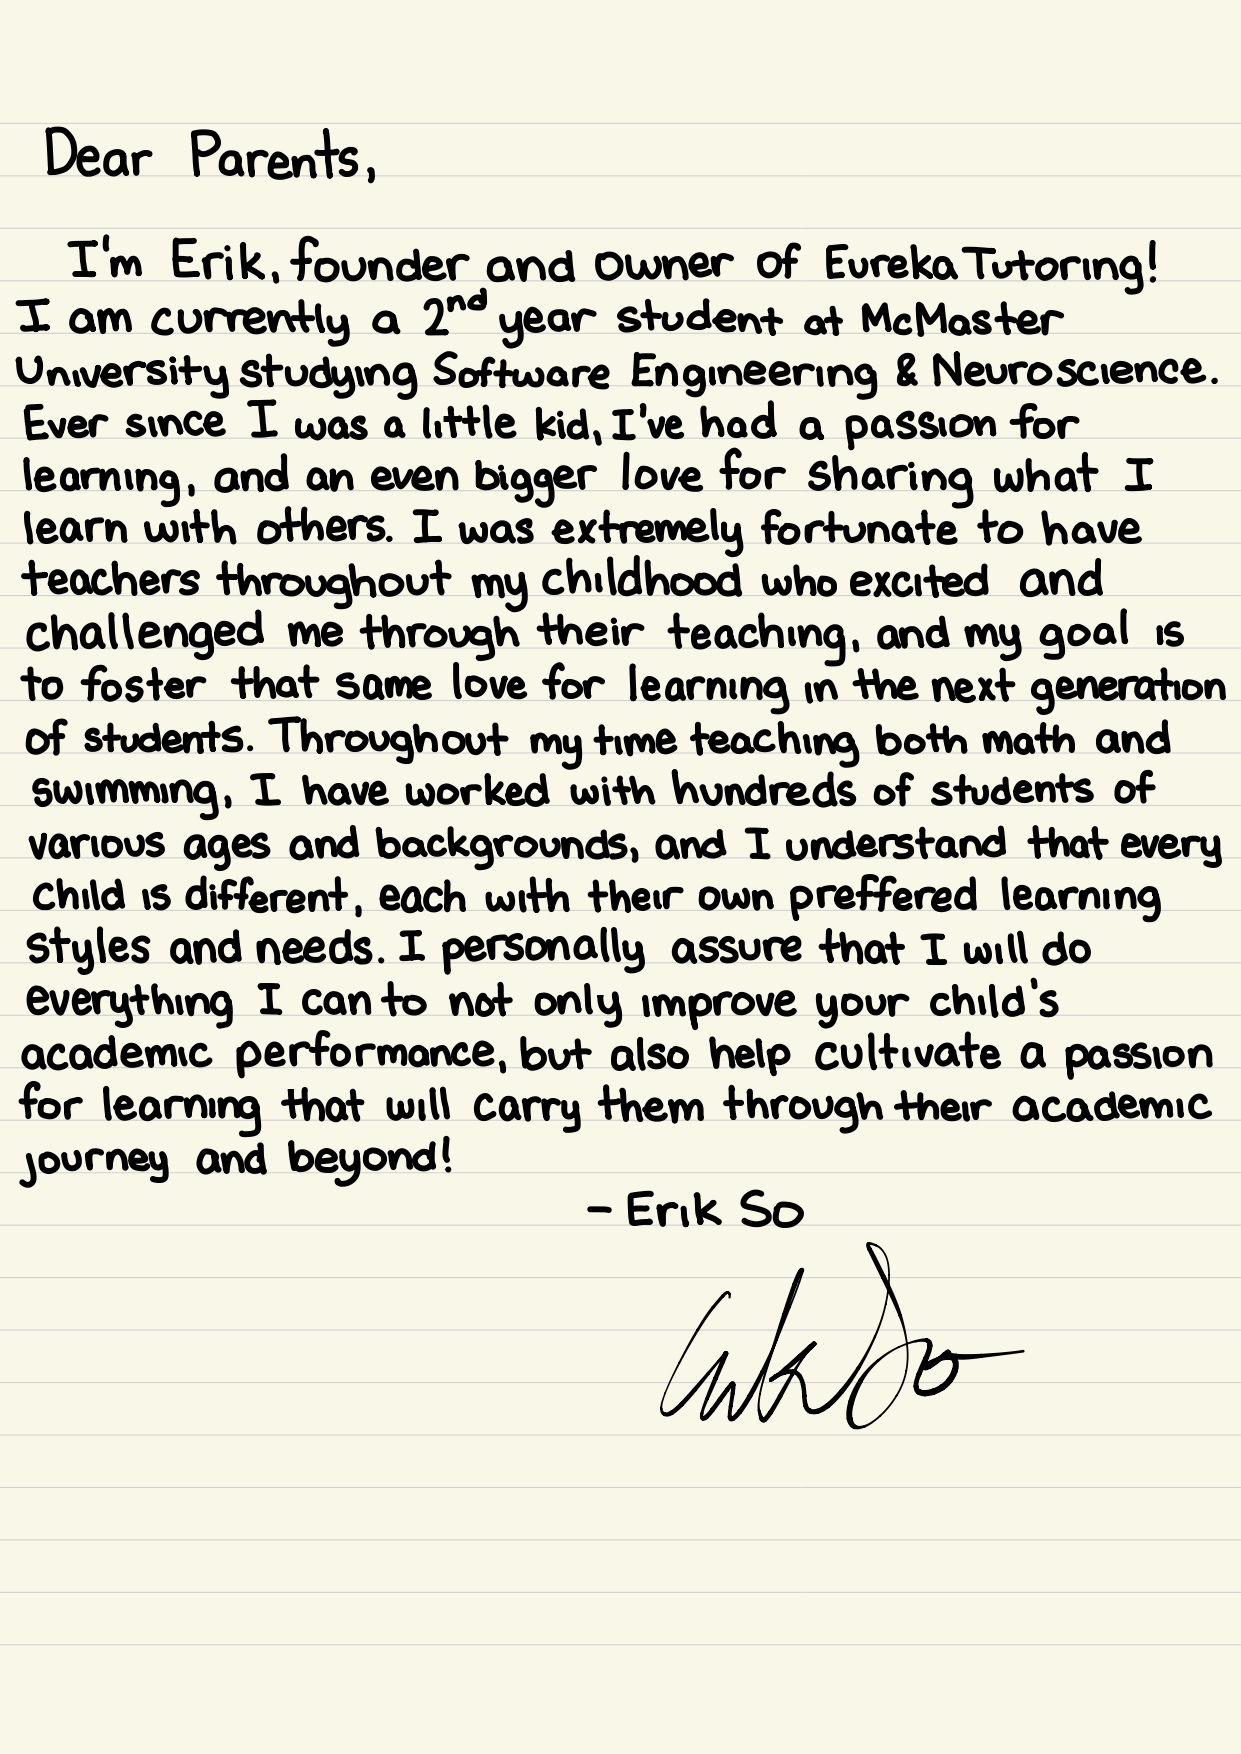 Dear Parents,
I'm Erik, founder and owner of Eureka Tutoring!
I am currently a 2nd year student at McMaster
University studying Software Engineering & Neuroscience.
Ever since I was a little kid, I've had a passion for
learning, and an even bigger love for sharing what I
learn with others. I was extremely fortunate to have
teachers throughout my childhood who excited and
challenged me through their teaching, and my goal is
to foster that same love for learning in the next generation
of students. Throughout my time teaching both math and
swimming, I have worked with hundreds of students of
various ages and backgrounds, and I understand that every
child is different, each with their own preffered learning
styles and needs. I personally assure that I will do
everything I can to not only improve your child's
academic performance, but also help cultivate a passion
for learning that will carry them through their academic
journey and beyond!
- Erik So
Erik So